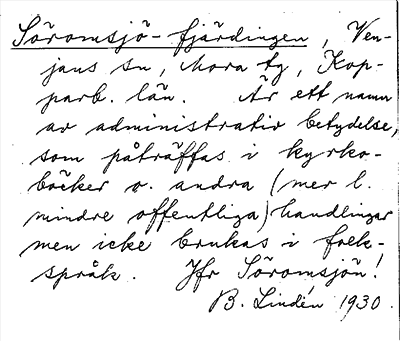 Söromsjö-fjärdingen, Ven-
jans sn, Mora tg, Kop-
parb. län. Är ett namn
av administrativ betydelse,
som påträffas i kyrko-
böcker o. andra (mer l.
mindre offentliga) handlingar
men icke brukas i folk-
språk. Jfr Söromsjön!
B. Lindén 1930.